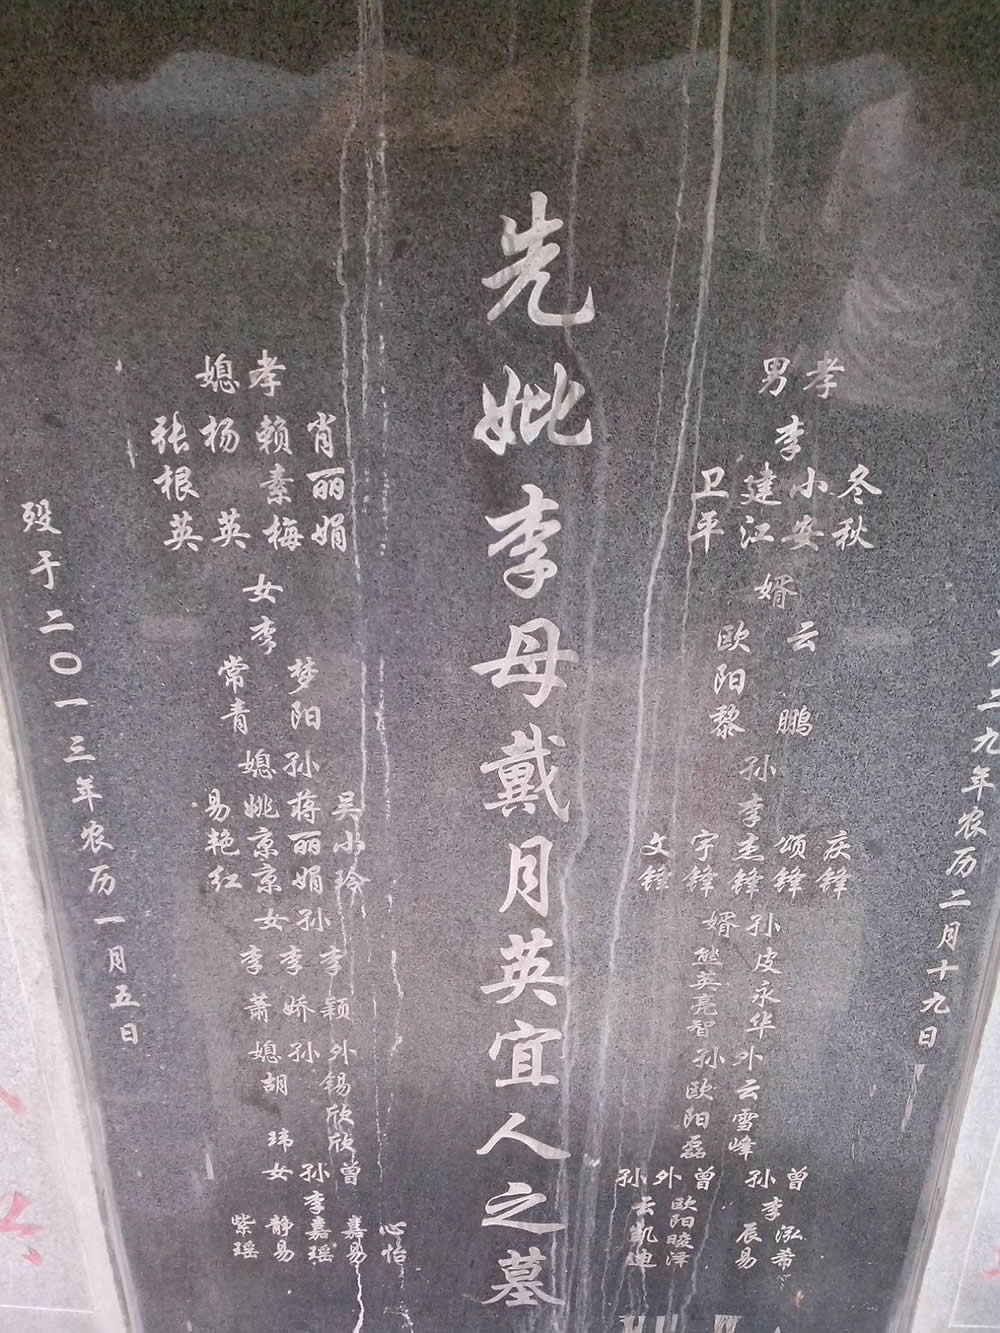 二九年农历二月十九日
孝男
李
冬秋
小安
建江
卫平
婿
云鹏
欧阳黎
孙
李
庆锋
颂锋
杰锋
宇锋
文锋
孙婿
皮永华
熊英亮智
外孙
云雪峰
欧阳磊
曾孙
李
泓希
辰易
曾外孙
欧阳晙泽
云凯迪
先妣李母戴月英宜人之墓
孝媳
肖丽娟
赖素梅
杨英
张根英
女
李
梦阳
常青
孙媳
吴小玲
蒋丽娟
姚京京
易艳红
孙女
李颖
李娇
李萧
外孙媳
锡欣欣
胡玮
曾孙女
李
心怡
嘉易
嘉瑶
静易
紫瑶
殁于二〇一三年农历一月五日